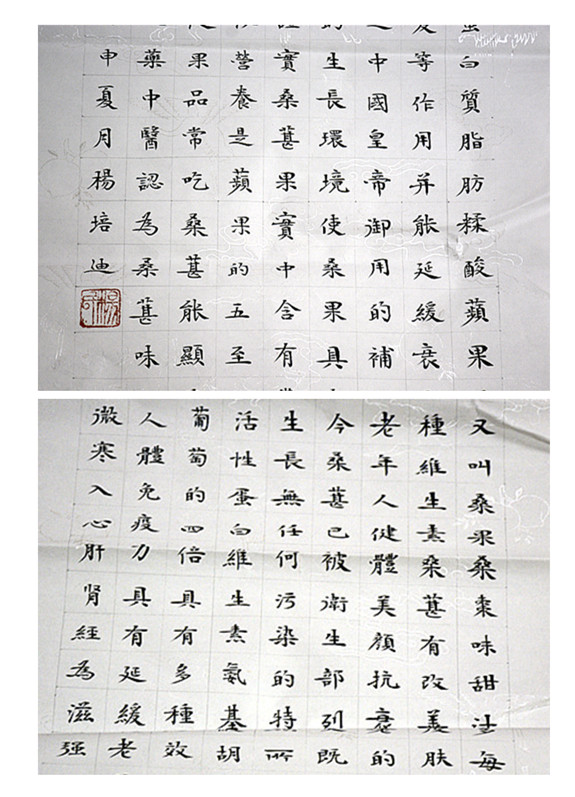 白質脂肪糅酸蘋果
等作用并能延緩衰
中國皇帝御用的補
生長環境使桑果具
實桑葚果實中含有
營養是蘋果的五至
果品常吃桑葚能顯
藥中醫認為桑葚味
申夏月楊培迪
又叫桑果桑棗味甜汁每
種維生素桑葚有改善肤
老年人健體美顏抗衰的
今桑葚已被衛生部列既
生長無任何污染的特所
活性蛋白維生素氨基胡
葡萄的四倍具有多種效
人體免疫力具有延緩老
微寒入心肝腎經為滋强